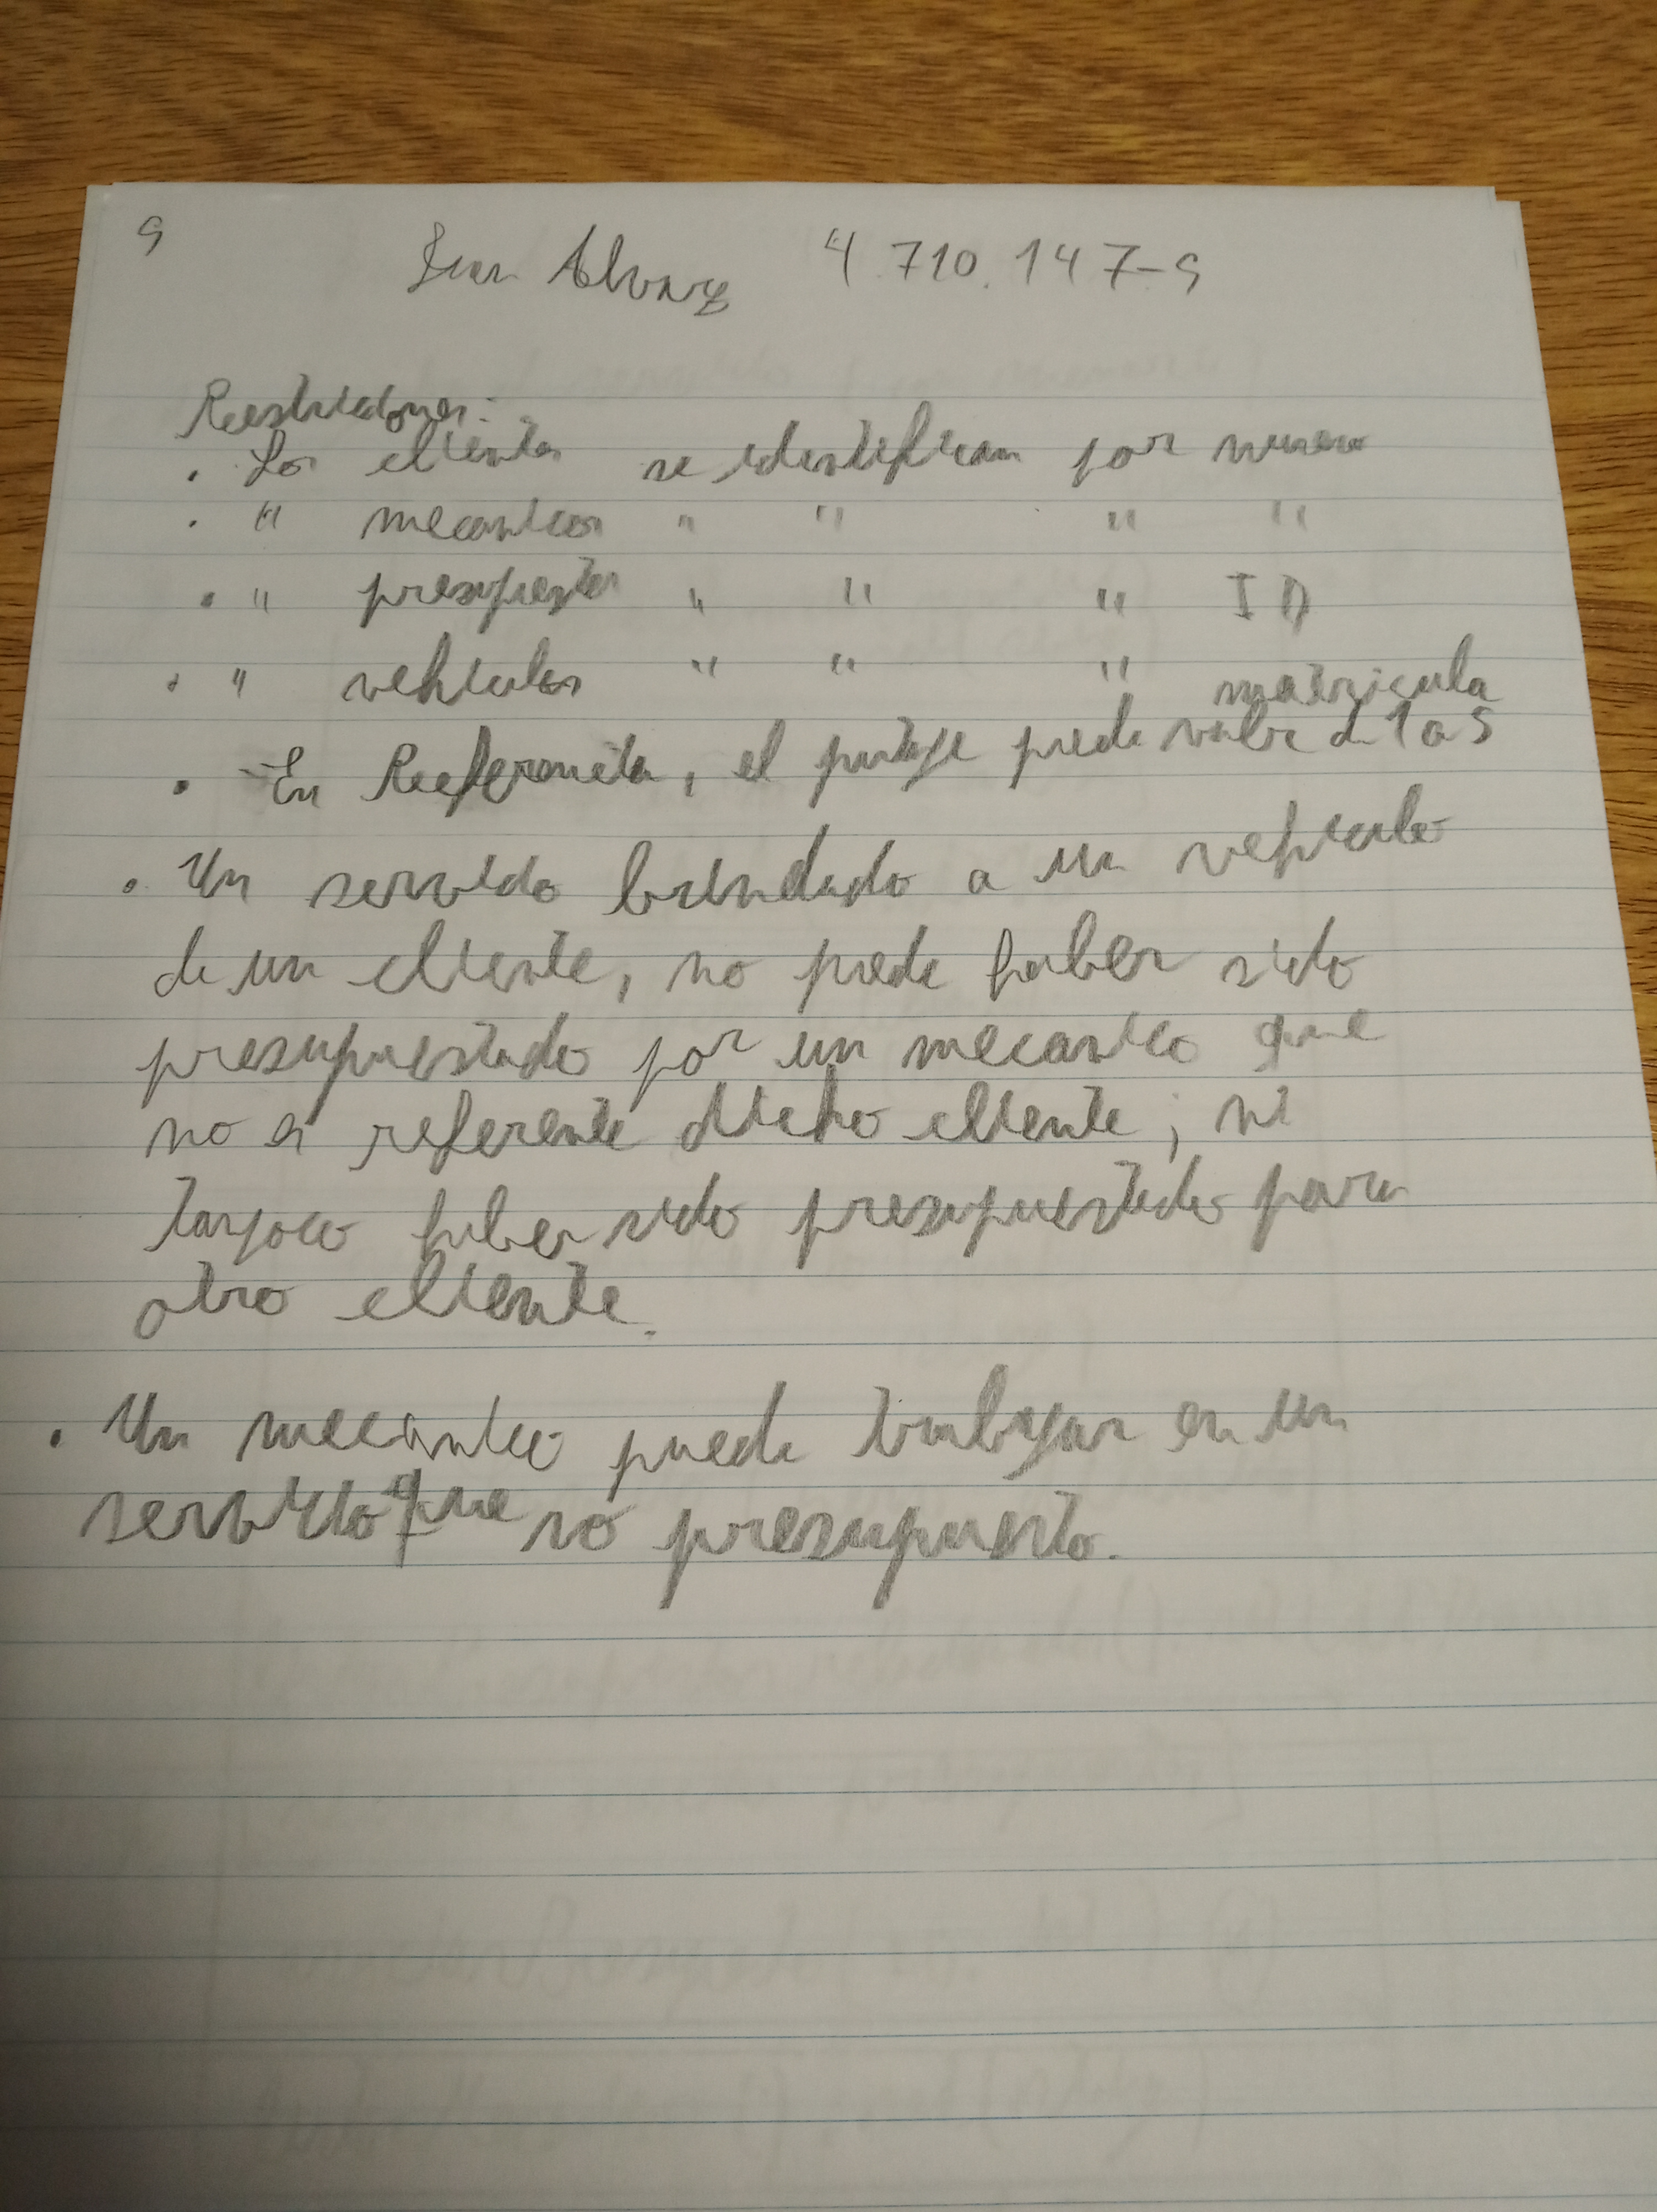 5
Juan Alvarez 4.710.147-5
Restricciones:
. Los clientes se identifican por numero
. " mecanicos " " " "
. " presupuestos " " " ID
. " vehiculos " " " matricula
. En Referencia, el puntaje puede valer de 1 a 5
. Un servicio brindado a un vehiculo
de un cliente, no puede haber sido
presupuestado por un mecanico que
no es referente dicho cliente; ni
tampoco haber sido presupuestado para
otro cliente.
. Un mecanico puede trabajar en un
servicio que no presupuesto.